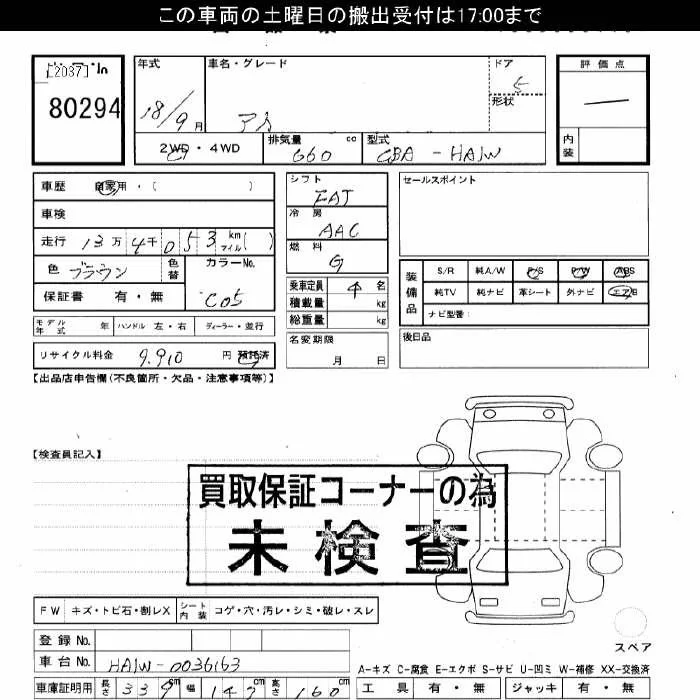 この車両の土曜日の搬出受付は17:00まで
[2037]
80294
年式
18/9 月
車名・グレード
ドア
5
形状
評価点
―
内装
2WD・4WD
排気量 660 cc
型式 CBA - HA1W
車歴 自家用・( )
車検
走行 13万 4千 053 km マイル ( )
色 ブラウン 色替
カラーNo. C05
保証書 有・無
シフト FAT
冷房 AAC
燃料 G
乗車定員 4 名
積載量 kg
総重量 kg
セールスポイント
装備品
S/R 純A/W P/S P/W ABS
純TV 純ナビ 革シート 外ナビ エアB
ナビ型番:
モデル年式 年 ハンドル 左・右 ディーラー・並行
名変期限
月 日
後日品
リサイクル料金 9,910 円 預託済
【出品店申告欄(不良箇所・欠品・注意事項等)】
【検査員記入】
買取保証コーナーの為
未検査
FW キズ・トビ石・割レX
シート内装 コゲ・穴・汚レ・シミ・破レ・スレ
スペア
登録No.
車台No. HA1W-0036163
A-キズ C-腐食 E-エクボ S-サビ U-凹ミ W-補修 XX-交換済
車庫証明用 長さ 339 cm 幅 147 cm 高さ 160 cm
工具 有・無 ジャッキ 有・無